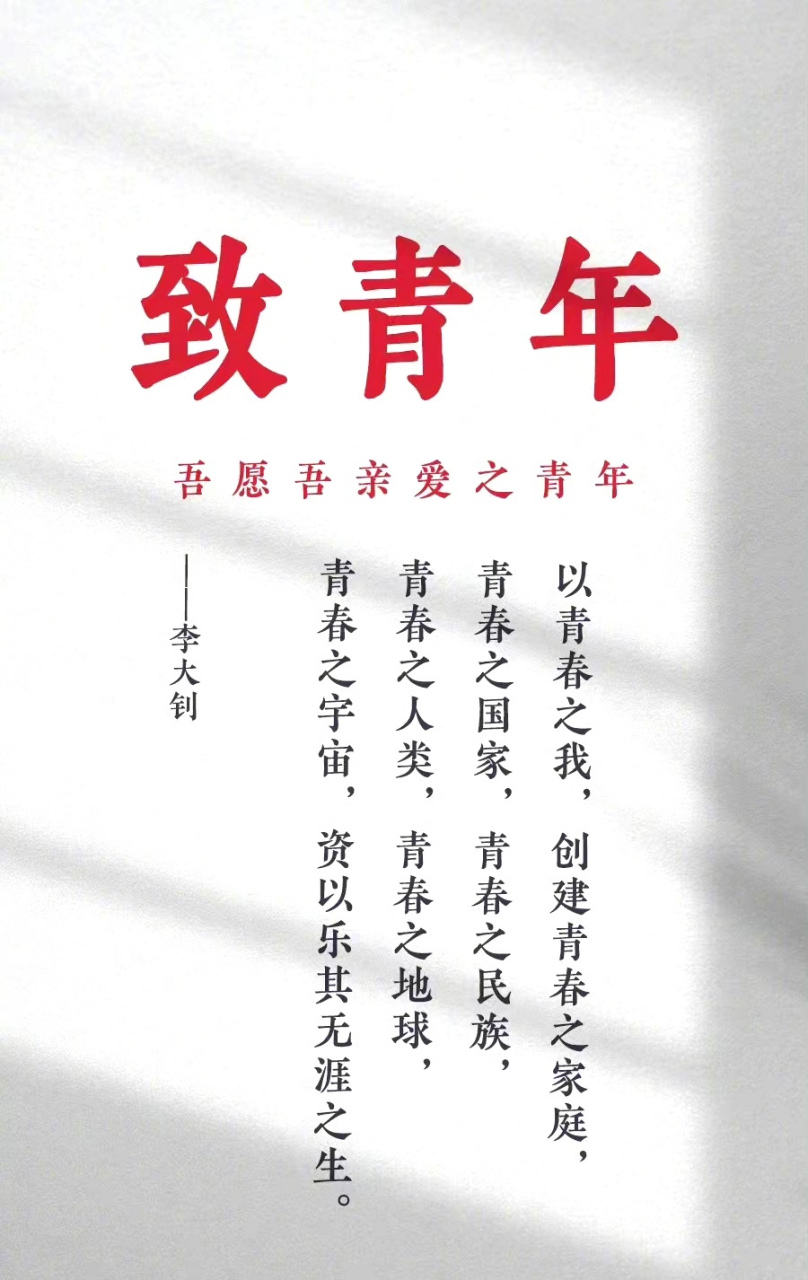 致青年
吾愿吾亲爱之青年
以青春之我，创建青春之家庭，
青春之国家，青春之民族，
青春之人类，青春之地球，
青春之宇宙，资以乐其无涯之生。
——李大钊